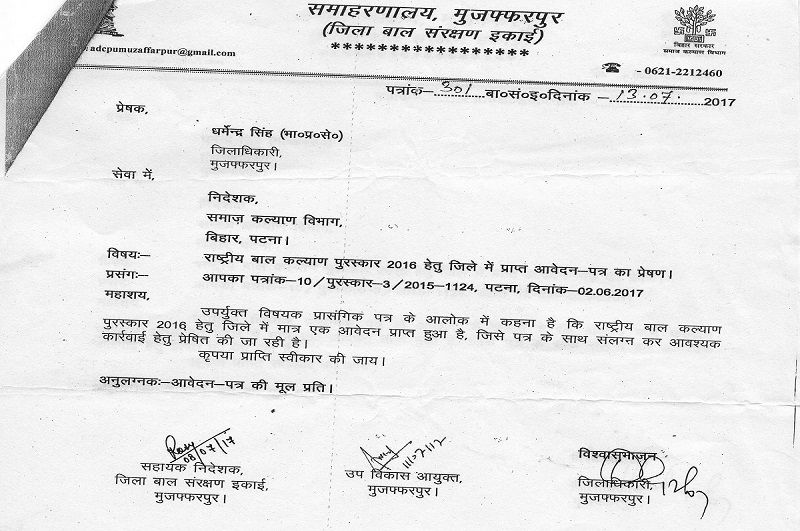 समाहरणालय, मुजफ्फरपुर
(जिला बाल संरक्षण इकाई)
*****************
adcpumuzaffarpur@gmail.com
बिहार सरकार
समाज कल्याण विभाग
☎ - 0621-2212460
पत्रांक–301 बा०सं०इ०दिनांक – 13.07. 2017
प्रेषक,
धर्मेन्द्र सिंह (भा०प्र०से०)
जिलाधिकारी,
मुजफ्फरपुर।
सेवा में,
निदेशक,
समाज़ कल्याण विभाग,
बिहार, पटना।
विषयः– राष्ट्रीय बाल कल्याण पुरस्कार 2016 हेतु जिले में प्राप्त आवेदन–पत्र का प्रेषण।
प्रसंगः– आपका पत्रांक–10/पुरस्कार–3/2015–1124, पटना, दिनांक–02.06.2017
महाशय,
उपर्युक्त विषयक प्रासंगिक पत्र के आलोक में कहना है कि राष्ट्रीय बाल कल्याण
पुरस्कार 2016 हेतु जिले में मात्र एक आवेदन प्राप्त हुआ है, जिसे पत्र के साथ संलग्न कर आवश्यक
कार्रवाई हेतु प्रेषित की जा रही है।
कृपया प्राप्ति स्वीकार की जाय।
अनुलग्नकः–आवेदन–पत्र की मूल प्रति।
08/07/17
सहायक निदेशक,
जिला बाल संरक्षण इकाई,
मुजफ्फरपुर।
उप विकास आयुक्त,
मुजफ्फरपुर।
विश्वासभाजन
जिलाधिकारी,
मुजफ्फरपुर।